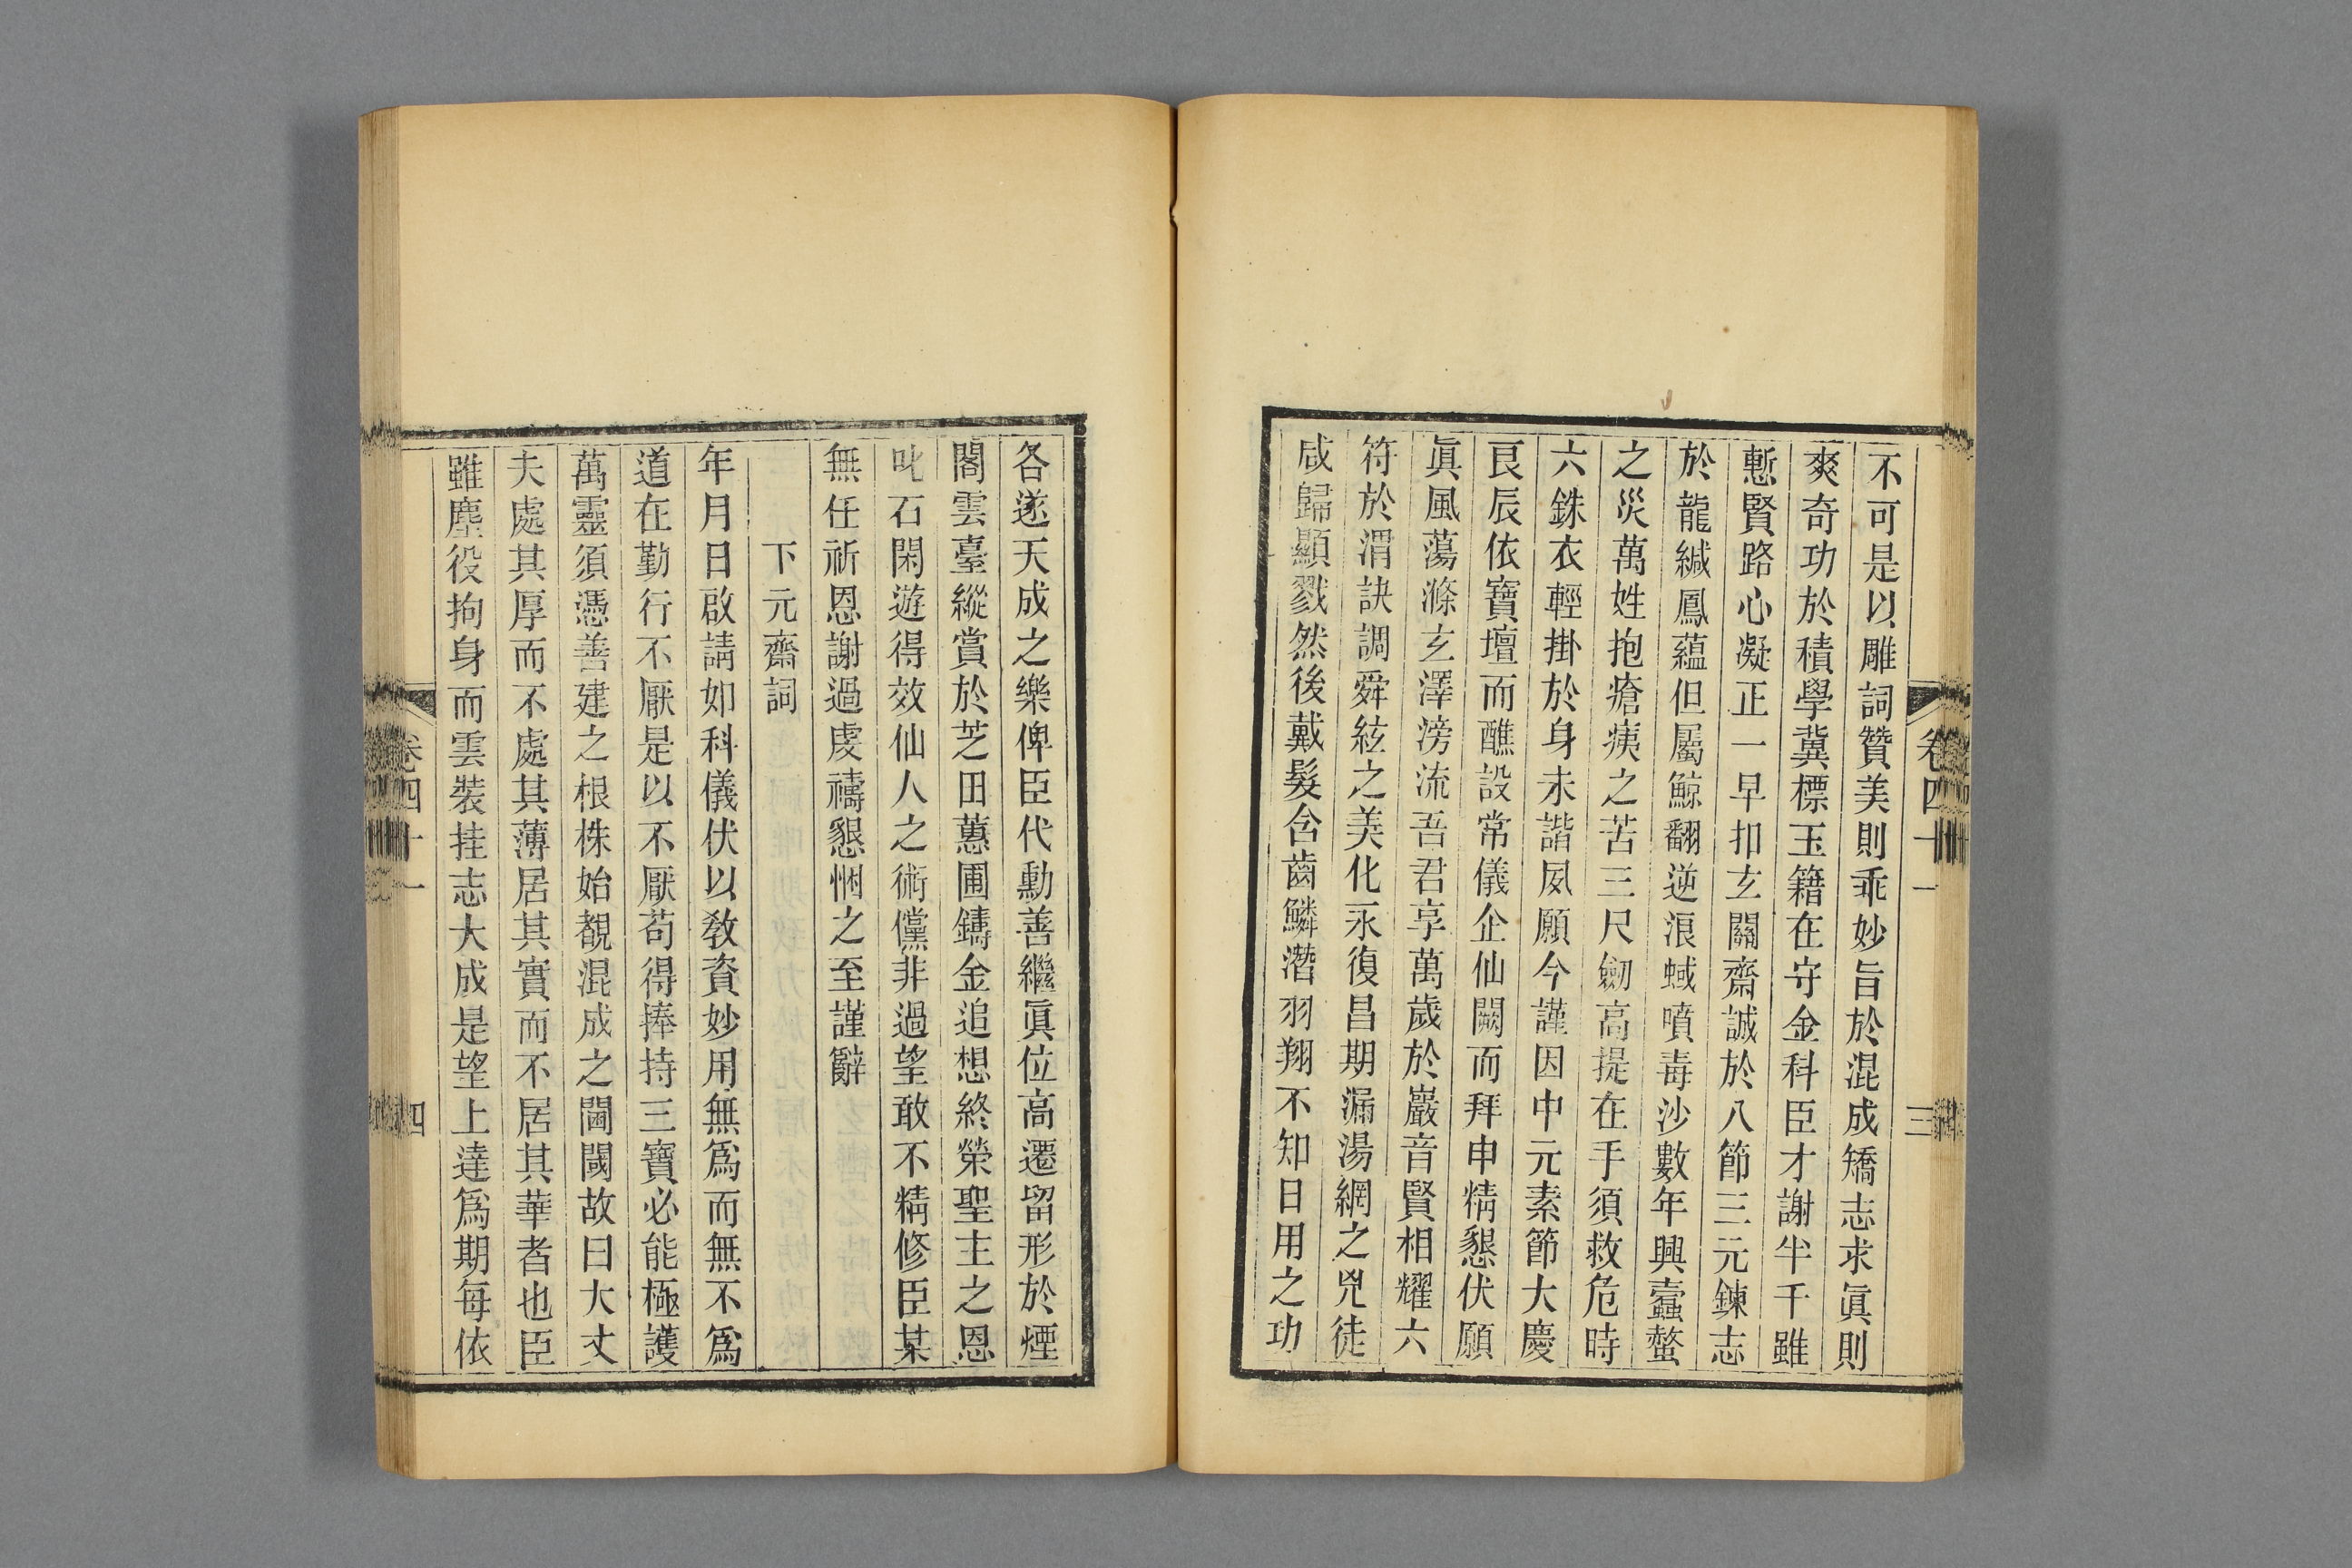 不可是以雕詞贊美則乖妙旨於混成矯志求眞則
爽奇功於積學冀標玉籍在守金科臣才謝半千雖
慙賢路心凝正一早扣玄關齋誠於八節三元鍊志
於龍緘鳳蘊但屬鯨翻逆浪蜮噴毒沙數年興蠹螫
之災萬姓抱瘡痍之苦三尺劒高提在手須救危時
六銖衣輕掛於身未諧夙願今謹因中元素節大慶
良辰依寶壇而醮設常儀企仙闕而拜申精懇伏願
眞風蕩滌玄澤滂流吾君享萬歲於巖音賢相耀六
符於渭訣調舜絃之美化永復昌期漏湯網之兇徒
咸歸顯戮然後戴髮含齒鱗潛羽翔不知日用之功
卷四十一
三
各遂天成之樂俾臣代勳善繼眞位高遷留形於煙
閣雲臺縱賞於芝田蕙圃鑄金追想終榮聖主之恩
叱石閑遊得效仙人之術儻非過望敢不精修臣某
無任祈恩謝過虔禱懇悃之至謹辭
下元齋詞
年月日啟請如科儀伏以敎資妙用無爲而無不爲
道在勤行不厭是以不厭苟得捧持三寶必能極護
萬靈須憑善建之根株始覩混成之閫閾故曰大丈
夫處其厚而不處其薄居其實而不居其華者也臣
雖塵役拘身而雲裝挂志大成是望上達爲期每依
卷四十一
四